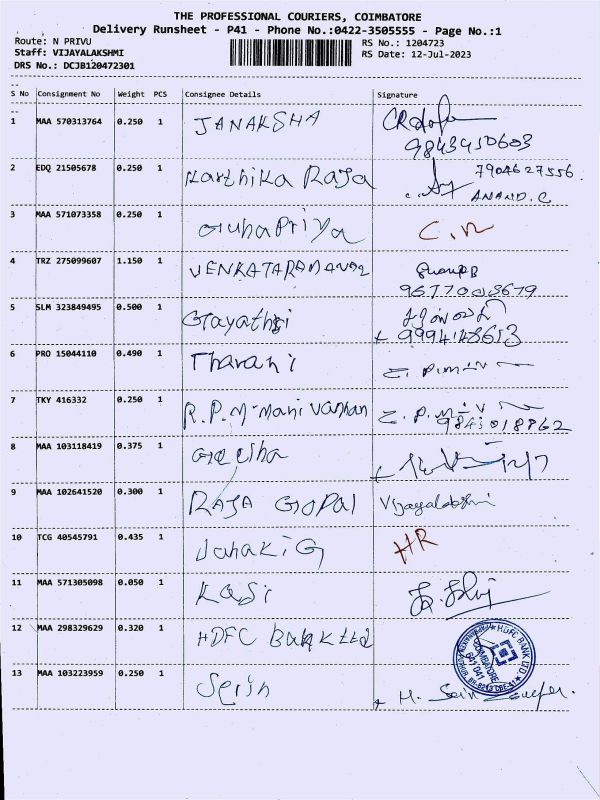 THE PROFESSIONAL COURIERS, COIMBATORE
Delivery Runsheet - P41 - Phone No.:0422-3505555 - Page No.:1
Route: N PRIVU
RS No.: 1204723
Staff: VIJAYALAKSHMI
RS Date: 12-Jul-2023
DRS No.: DCJB120472301
S No Consignment No Weight PCS Consignee Details Signature
1 MAA 570313764 0.250 1 JANAKSHA
9843910603
2 EDQ 21505678 0.250 1 Karthika RAJA 7904627556
ANAND.C
3 MAA 571073358 0.250 1 GuhaPriya
4 TRZ 275099607 1.150 1 VENKATARAMANAN
9677003679
5 SLM 323849495 0.500 1 Gayathri
9994148613
6 PRO 15044110 0.490 1 Tharani
7 TKY 416332 0.250 1 R.P.M-Mani Vannan
8 MAA 103118419 0.375 1
9 MAA 102641520 0.300 1 RAJA GOPAL Vijayalakshmi
10 TCG 40545791 0.435 1 Janaki G HR
11 MAA 571305098 0.050 1 Kasi
12 MAA 298329629 0.320 1 HDFC Bank Ltd
HDFC BANK LTD.
COIMBATORE
641 041
13 MAA 103223959 0.250 1